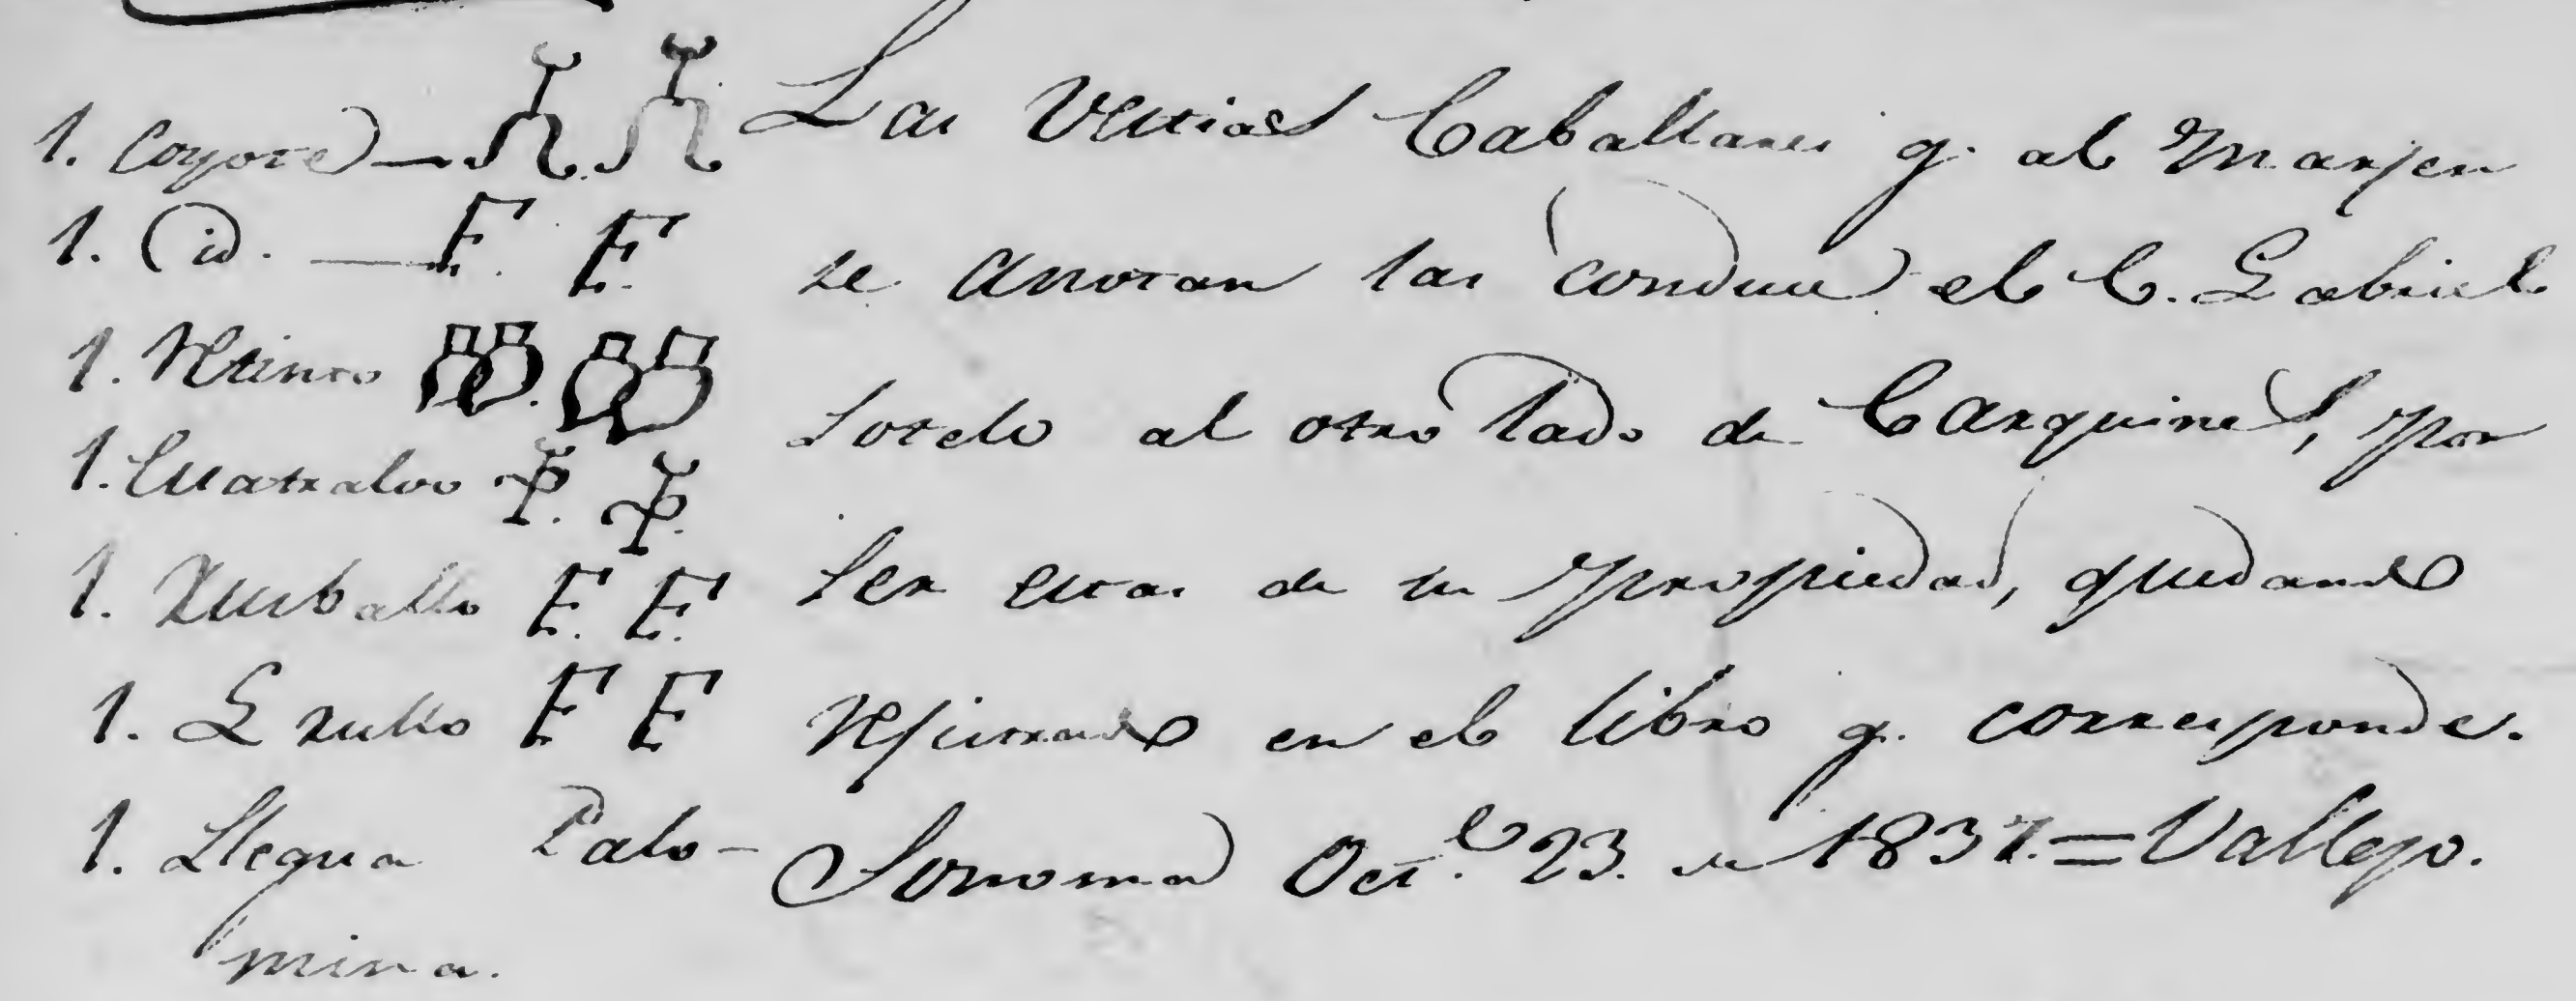 1. Coyote —
1. id. — F. F.
1. Retinto
1. Cuatralvo
1. Zueballo F. F.
1. Grullo F F
1. Llegua Palo-
mina.
Las Vestias Caballares q. al Marjen
se Anotan las conduce el C. Gabriel
Sotelo al otro lado de Carquines, por
ser estas de su propiedad, quedando
Rejistrado en el libro q. corresponde.
Sonoma Oct.e 23. de 1837. = Vallejo.